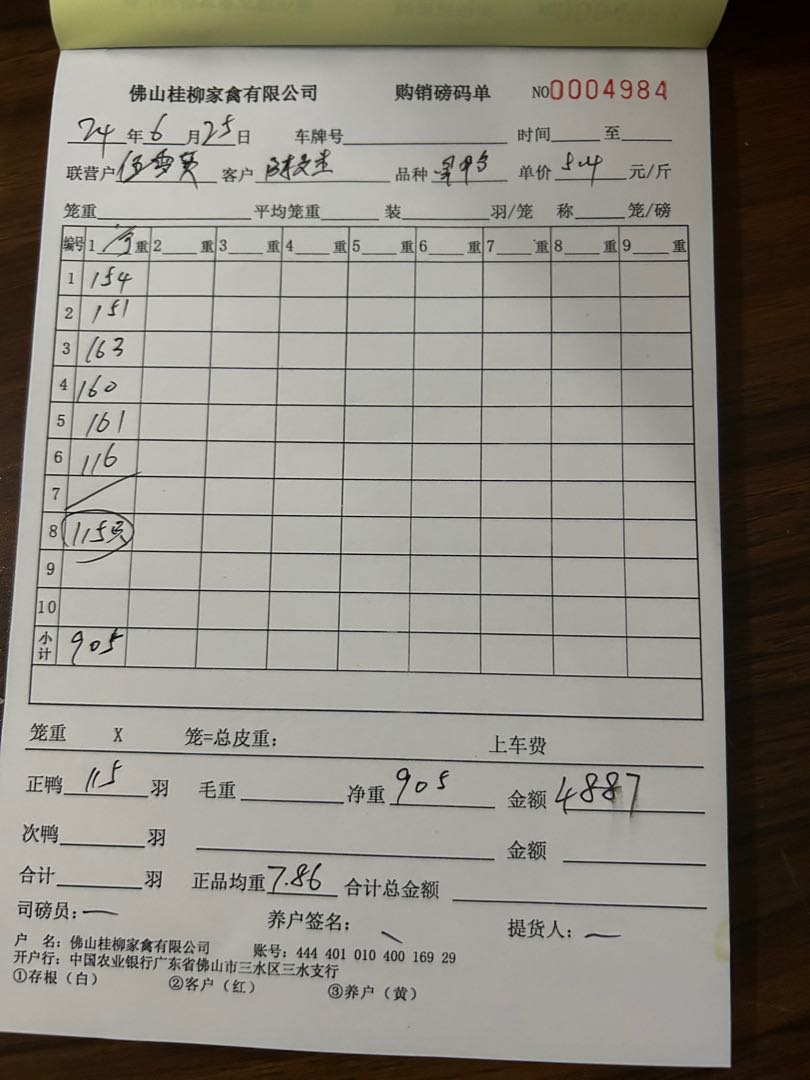 佛山桂柳家禽有限公司 购销磅码单 NO0004984
24年6月25日 车牌号 时间 至
联营户 伍雪英 客户 品种 单价 5.4 元/斤
笼重 平均笼重 装 羽/笼 称 笼/磅
编号 1 重 2 重 3 重 4 重 5 重 6 重 7 重 8 重 9 重
1 154
2 151
3 163
4 160
5 161
6 116
7
8 115只
9
10
小计 905
笼重 X 笼=总皮重: 上车费
正鸭 115 羽 毛重 净重 905 金额 4887
次鸭 羽 金额
合计 羽 正品均重 7.86 合计总金额
司磅员: 养户签名: 提货人:
户 名: 佛山桂柳家禽有限公司 账号: 444 401 010 400 169 29
开户行: 中国农业银行广东省佛山市三水区三水支行
①存根(白) ②客户(红) ③养户(黄)